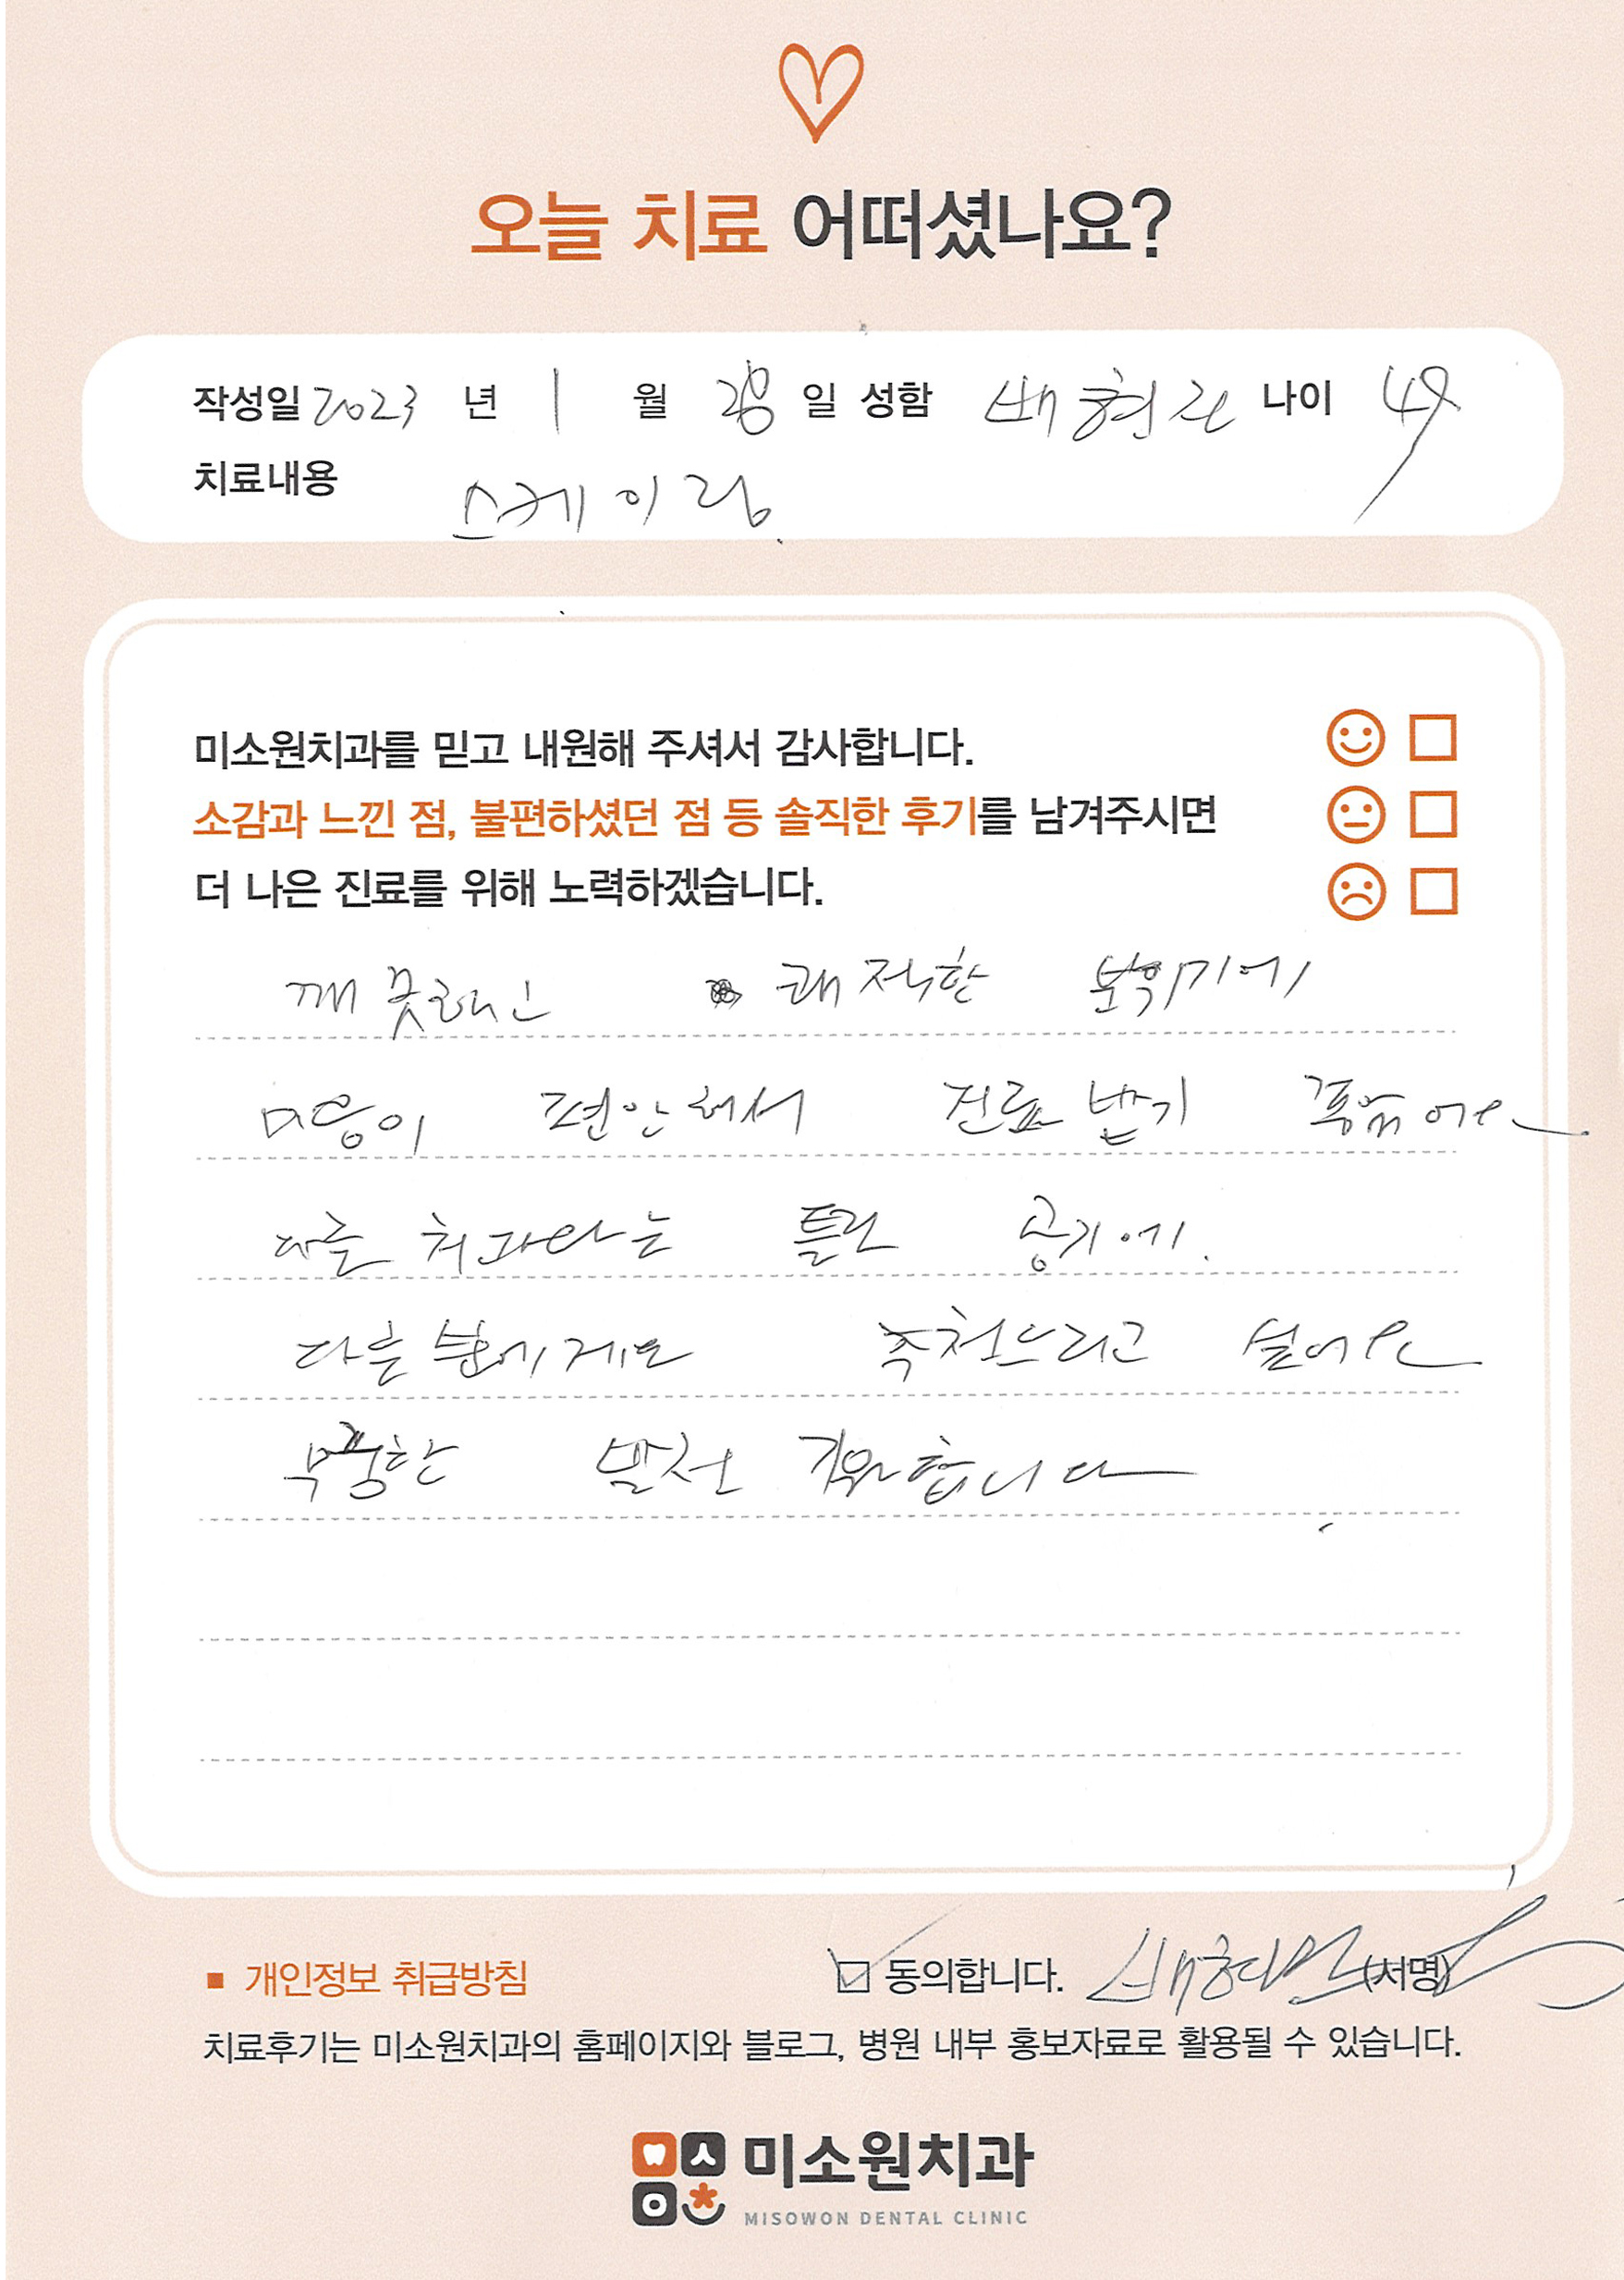 오늘 치료 어떠셨나요?
작성일 2023 년 1 월 28 일 성함 배현란 나이 49
치료내용 스케이링
미소원치과를 믿고 내원해 주셔서 감사합니다.
소감과 느낀 점, 불편하셨던 점 등 솔직한 후기를 남겨주시면
더 나은 진료를 위해 노력하겠습니다.
깨끗하고 쾌적한 분위기에
마음이 편안해서 진료 받기 좋았어요
다른 치과와는 틀린 공기에.
다른 분에게도 추천드리고 싶어요
무궁한 발전 기원합니다
개인정보 취급방침 동의합니다. (서명)
치료후기는 미소원치과의 홈페이지와 블로그, 병원 내부 홍보자료로 활용될 수 있습니다.
미소원치과
MISOWON DENTAL CLINIC